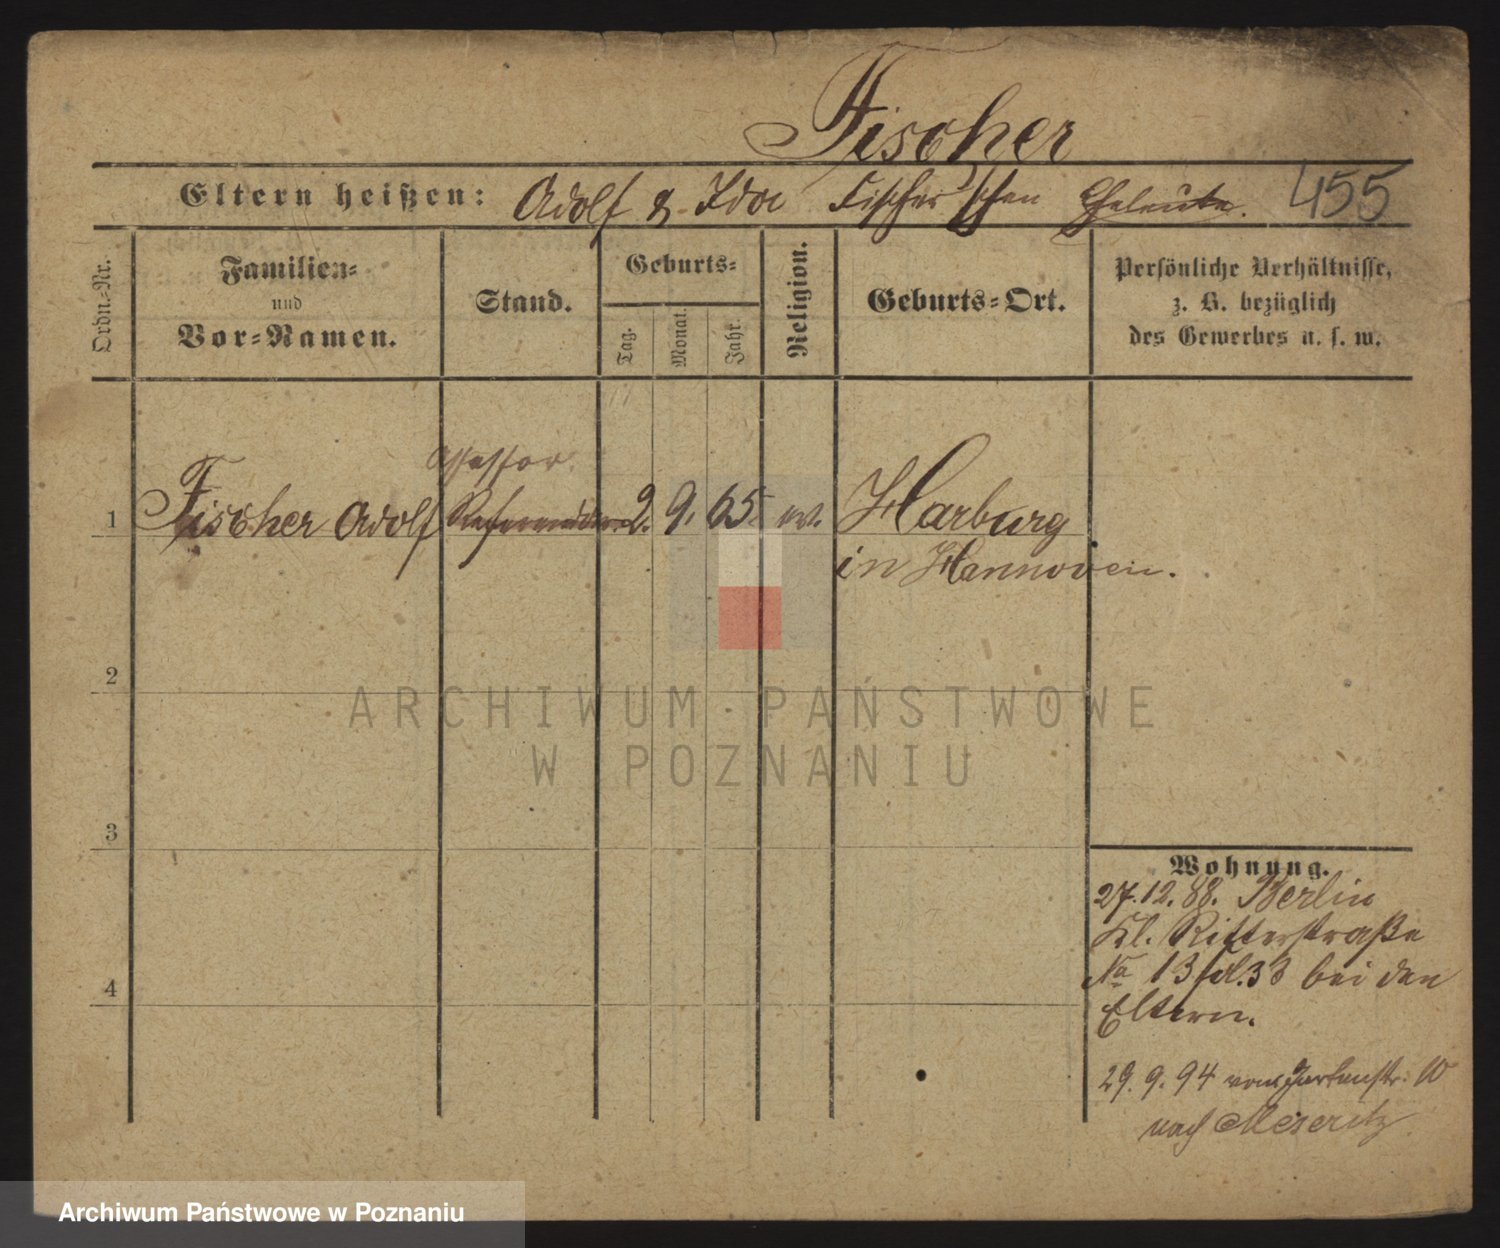 Fischer
Eltern heißen: Adolf & Ida Fischer'schen Eheleute. 455
Ordn.-Nr.
Familien-
und
Vor-Namen.
Stand.
Geburts-
Tag.
Monat.
Jahr.
Religion.
Geburts-Ort.
Persönliche Verhältnisse,
z. B. bezüglich
des Gewerbes u. s. w.
Assessor
1 Fischer Adolf Referendar 2. 9. 65 ev. Harburg
in Hannover.
2
3
4
Wohnung.
27.12.88. Berlin
Kl. Ritterstraße
No 13 bei den
Eltern.
29. 9. 94 von Gartenstr. 10
nach Meseritz
ARCHIWUM PAŃSTWOWE
W POZNANIU
Archiwum Państwowe w Poznaniu